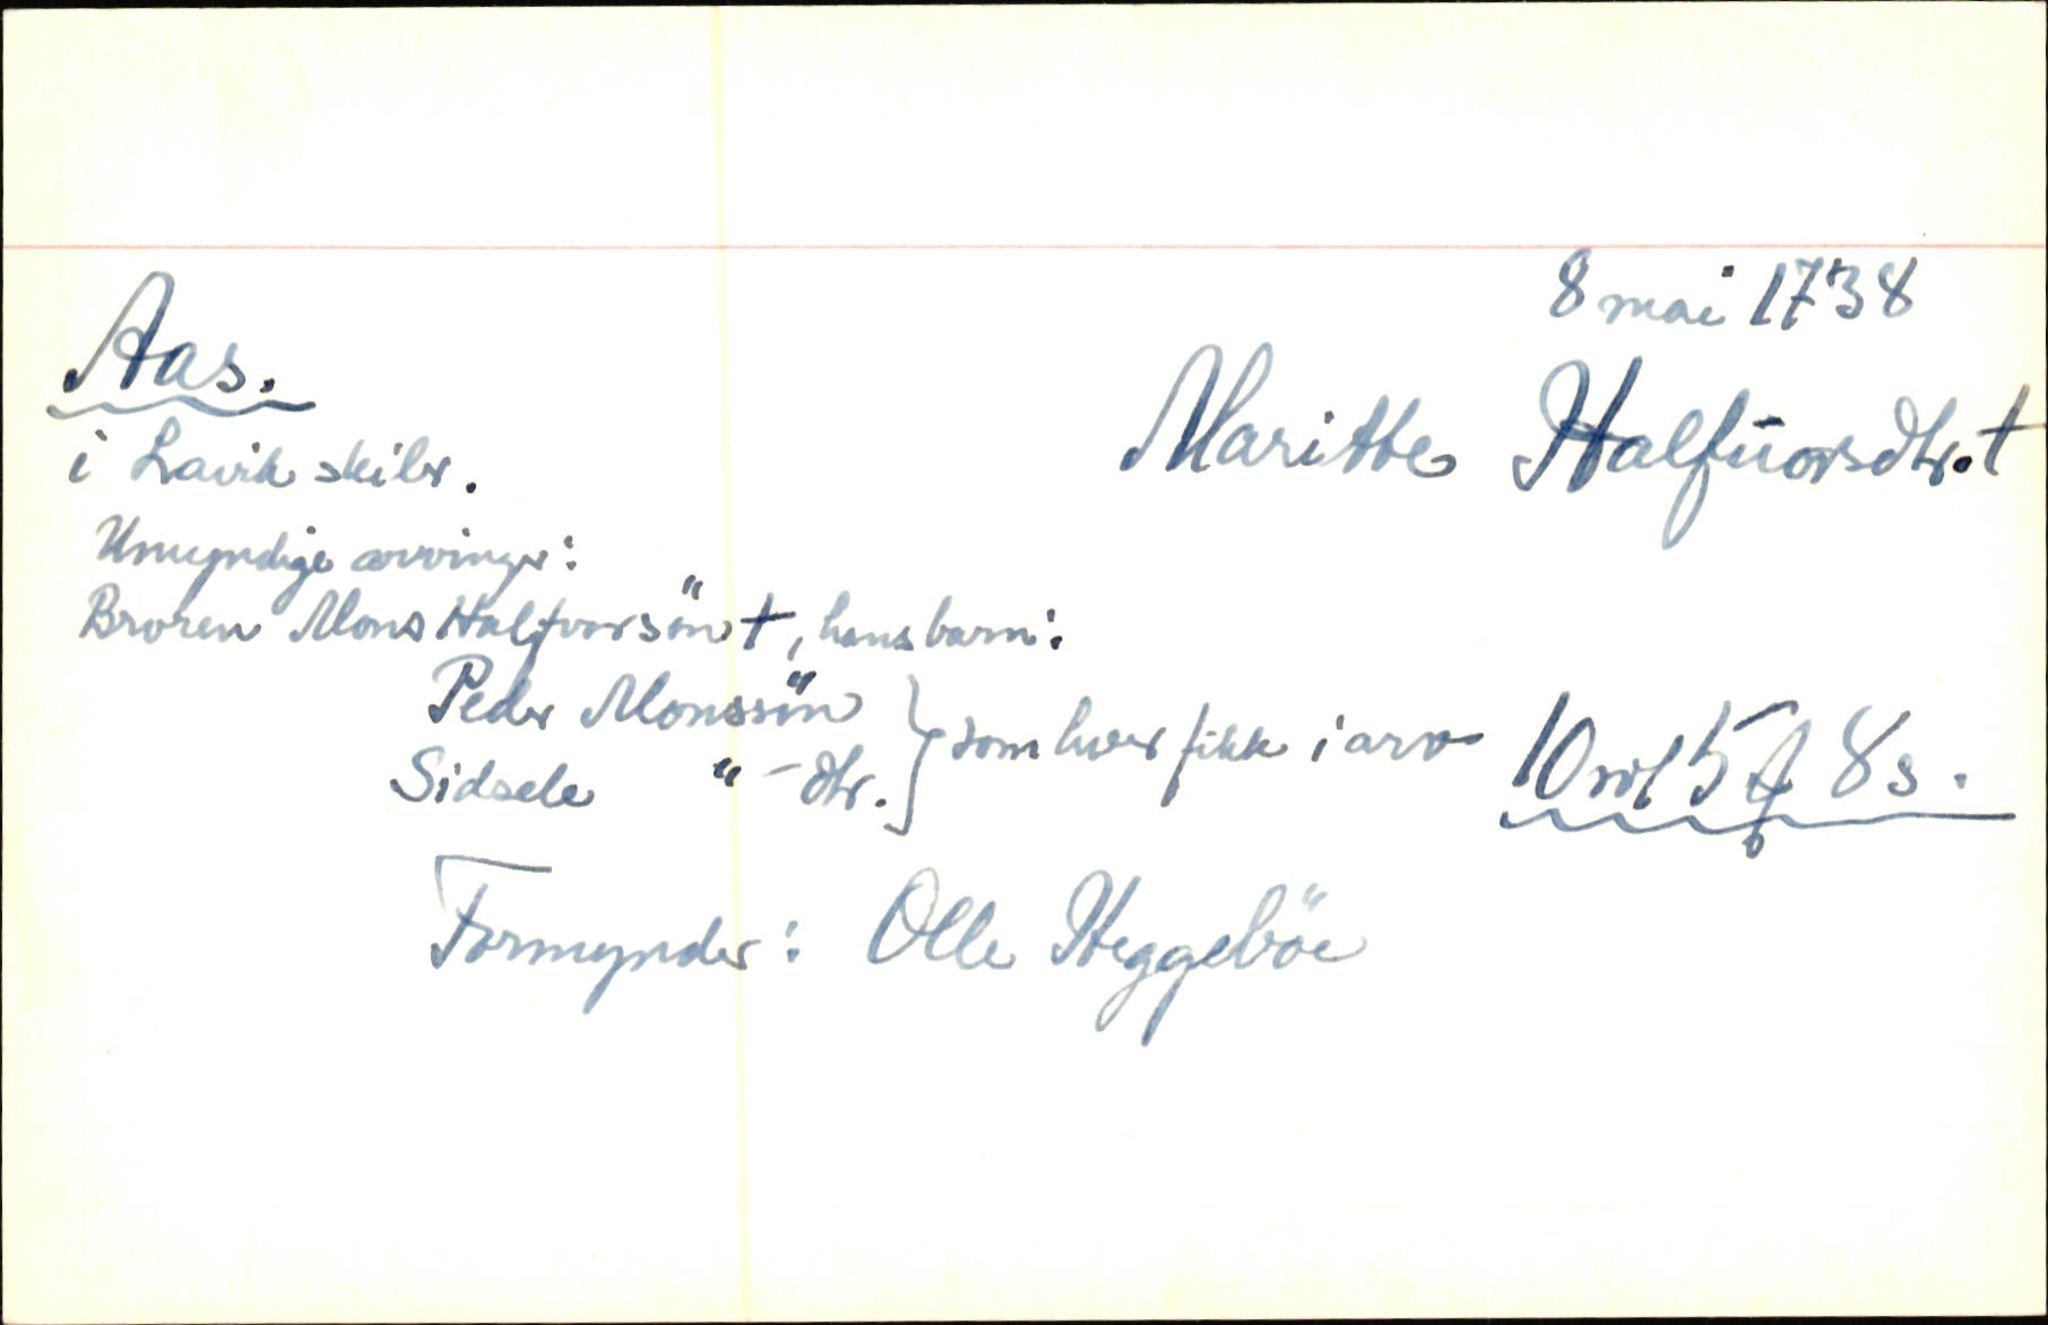 8 mai 1738
Aas.
Maritte Halfuorsdtr. †
i Lavik skibr.
Umyndige arvinger:
Broren Mons Halfvorsön †, hans barn:
Peder Monssön
Sidsele " - dtr. } som hver fikk i arv 10 rd 5 8 s.
Formynder: Olle Heggeböe